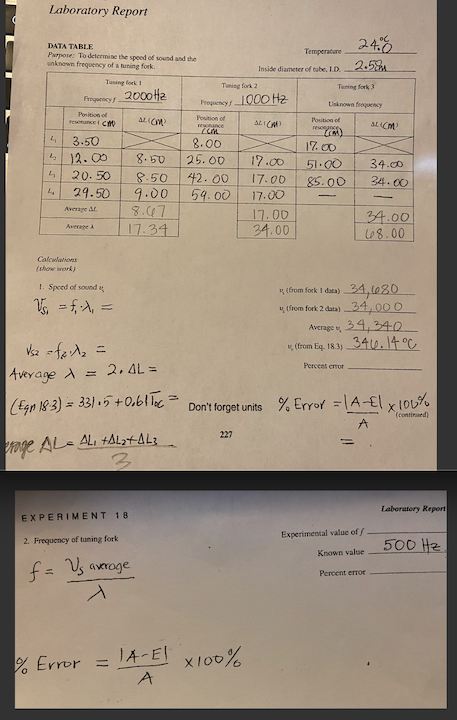 Laboratory Report
DATA TABLE
Purpose: To determine the speed of sound and the
unknown frequency of a tuning fork.
Temperature 24.0°C
Inside diameter of tube, I.D.
Tuning fork 1 Tuning fork 2 Tuning fork 3
Frequency f 2000 Hz Frequency f 1000 Hz Unknown frequency
Position of resonance (cm) ΔL (cm) Position of resonance (cm) ΔL (cm) Position of resonance (cm) ΔL (cm)
L₁ 3.50 8.00 17.00
L₂ 12.00 8.50 25.00 17.00 51.00 34.00
L₃ 20.50 8.50 42.00 17.00 85.00 34.00
L₄ 29.50 9.00 59.00 17.00 — —
Average ΔL 8.67 17.00 34.00
Average λ 17.34 34.00 68.00
Calculations
(show work)
1. Speed of sound vₛ
vₛ (from fork 1 data) 34,680
Vs₁ = f₁·λ₁ =
vₛ (from fork 2 data) 34,000
Average vₛ 34,340
Vs2 = f₂·λ₂ =
vₛ (from Eq. 18.3) 346.14°C
Average λ = 2.ΔL =
Percent error
(Eqn 18.3) = 331.5+0.6 Toc =
Don't forget units
% Error = |A-E| x 100%
A
(continued)
=
ΔL = ΔL₁+ΔL₂+ΔL₃
3
227
Laboratory Report
EXPERIMENT 18
2. Frequency of tuning fork
Experimental value of f
Known value 500 Hz
Percent error
f = Vs average
λ
% Error = |A-E| x100%
A